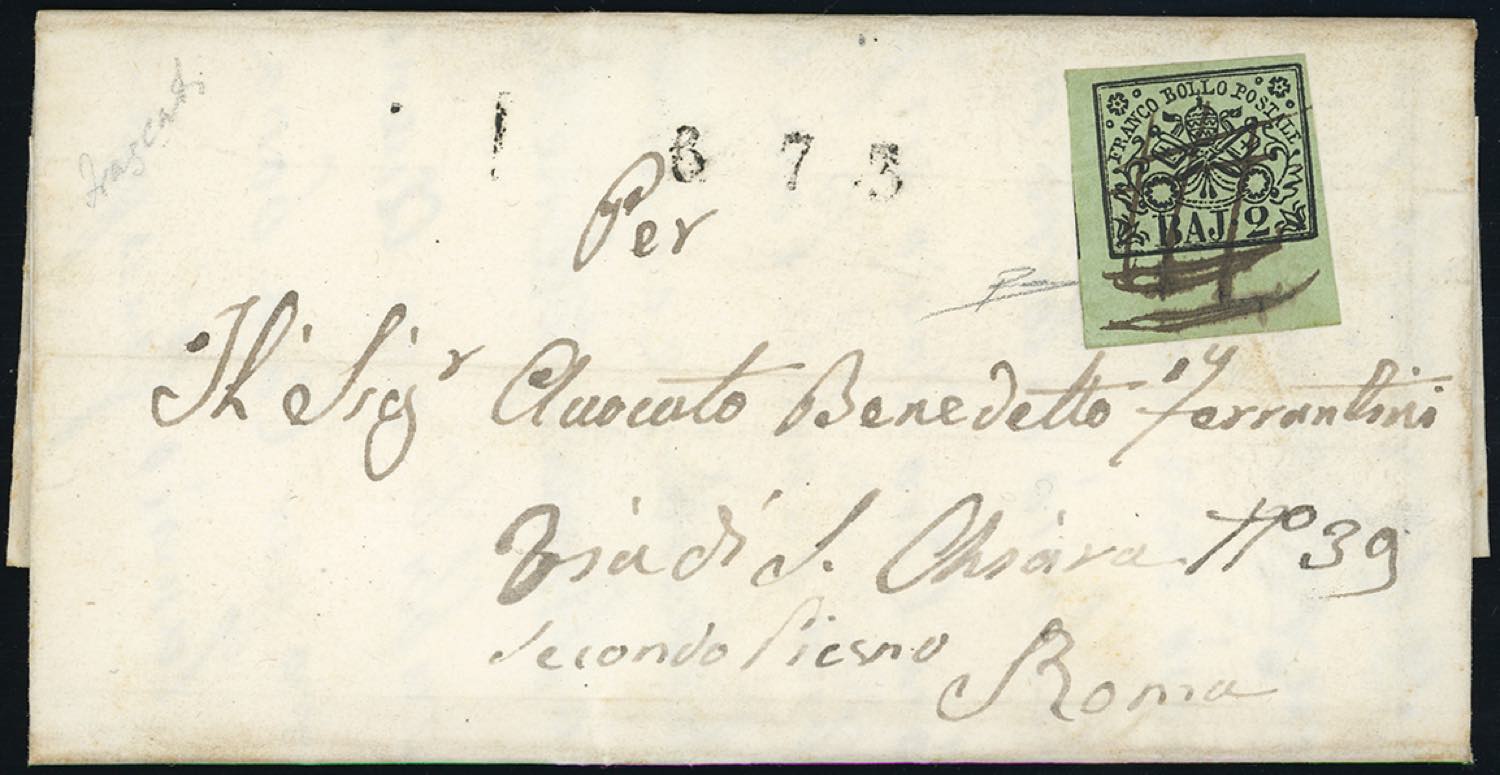 frascati
1 6 7 3
FRANCO BOLLO POSTALE
BAJ. 2
Per
Il Sig.r Avocato Benedetto Ferrantini
Via di S. Chiara N° 39
Secondo Piano
Roma